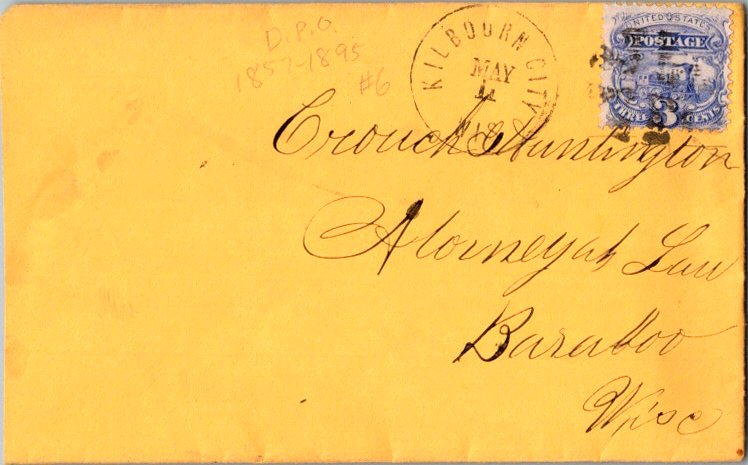 D.P.O.
1857-1895
#6
KILBOURN CITY
MAY
11
WIS
UNITED STATES
POSTAGE
THREE 3 CENTS
Crouch & Huntington
Atorneyah Law
Baraboo
Wisc